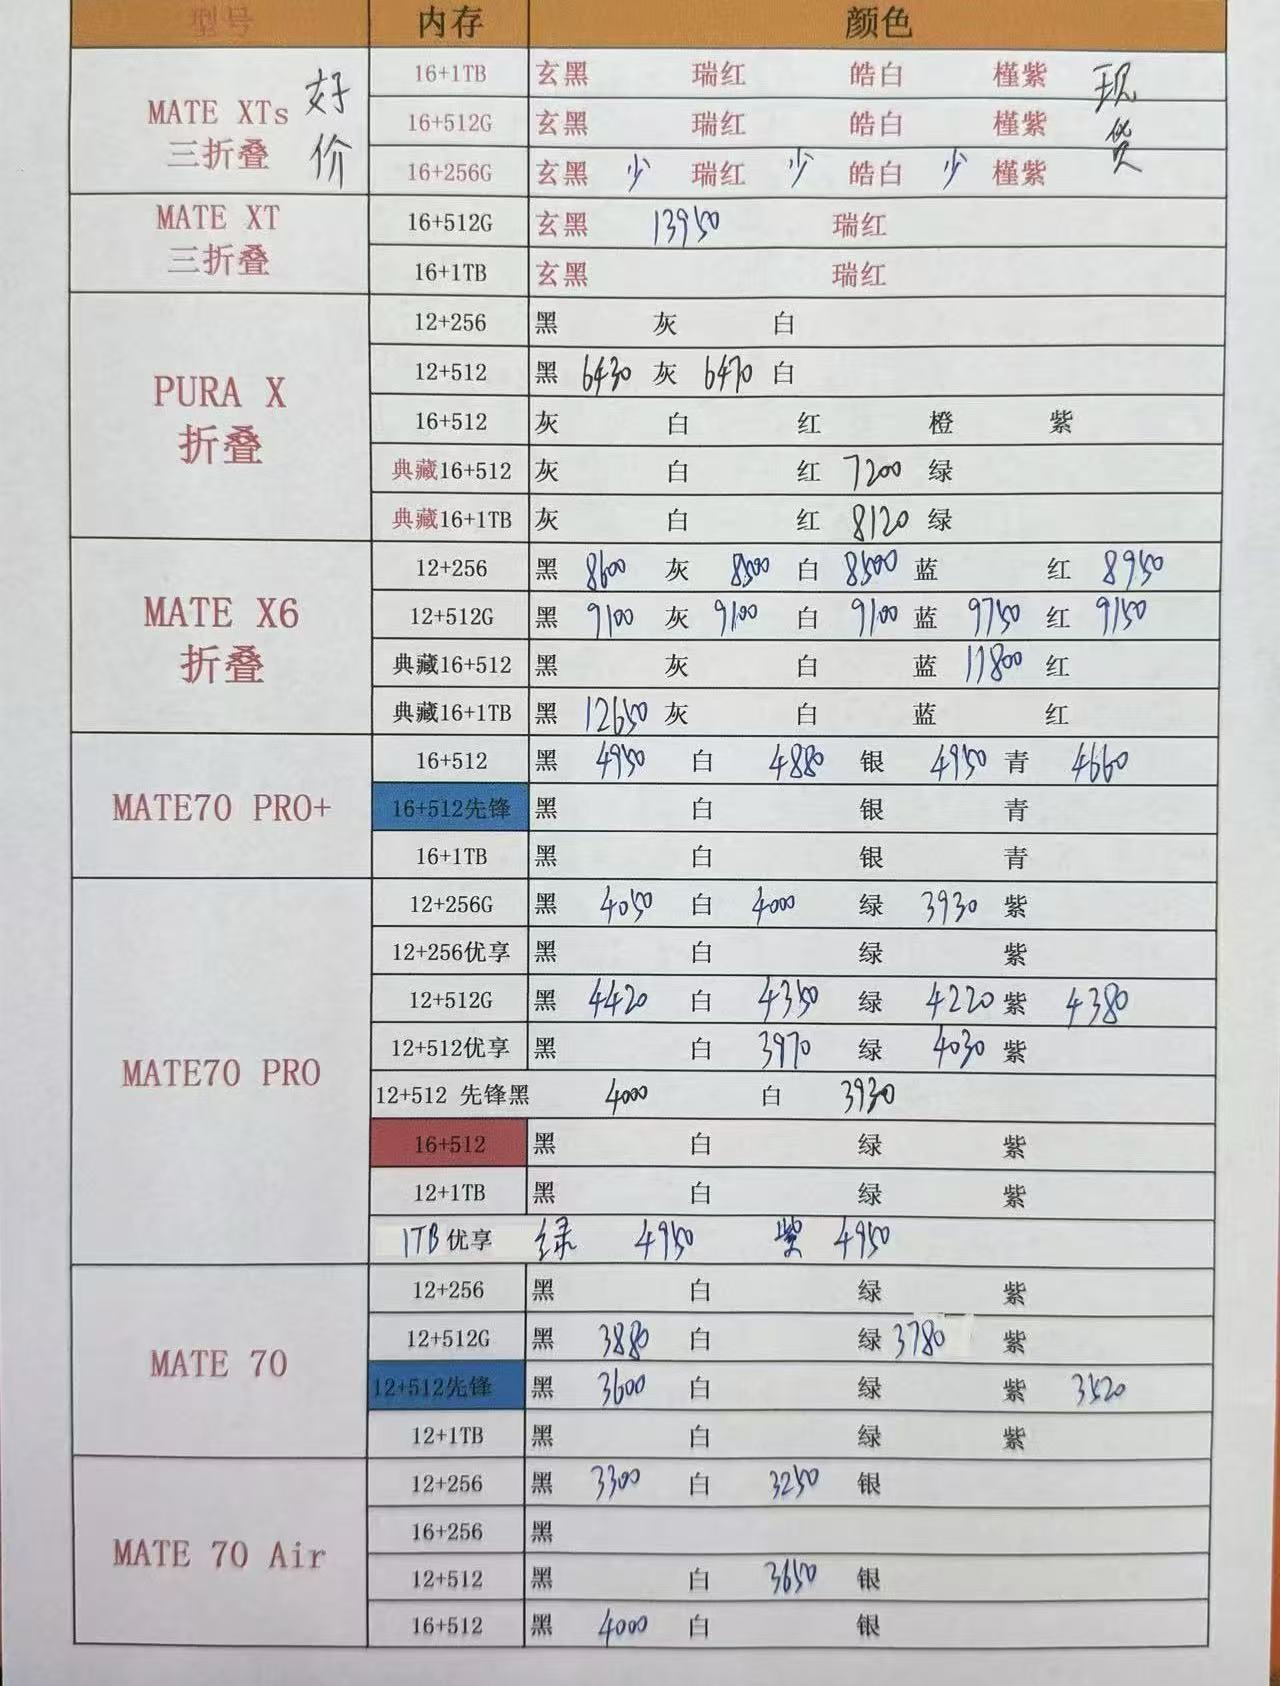 型号 内存 颜色
MATE XTs 三折叠 好价 现货
16+1TB 玄黑 瑞红 皓白 槿紫
16+512G 玄黑 瑞红 皓白 槿紫
16+256G 玄黑 少 瑞红 少 皓白 少 槿紫
MATE XT 三折叠
16+512G 玄黑 13950 瑞红
16+1TB 玄黑 瑞红
PURA X 折叠
12+256 黑 灰 白
12+512 黑 6430 灰 6470 白
16+512 灰 白 红 橙 紫
典藏16+512 灰 白 红 7200 绿
典藏16+1TB 灰 白 红 8120 绿
MATE X6 折叠
12+256 黑 8600 灰 8500 白 8500 蓝 红 8950
12+512G 黑 9100 灰 9100 白 9100 蓝 9750 红 9150
典藏16+512 黑 灰 白 蓝 11800 红
典藏16+1TB 黑 12650 灰 白 蓝 红
MATE70 PRO+
16+512 黑 4950 白 4880 银 4950 青 4660
16+512先锋 黑 白 银 青
16+1TB 黑 白 银 青
MATE70 PRO
12+256G 黑 4050 白 4000 绿 3930 紫
12+256优享 黑 白 绿 紫
12+512G 黑 4420 白 4350 绿 4220 紫 4380
12+512优享 黑 白 3970 绿 4030 紫
12+512 先锋黑 4000 白 3930
16+512 黑 白 绿 紫
12+1TB 黑 白 绿 紫
1TB优享 绿 4950 紫 4950
MATE 70
12+256 黑 白 绿 紫
12+512G 黑 3880 白 绿 3780 紫
12+512先锋 黑 3600 白 绿 紫 3520
12+1TB 黑 白 绿 紫
MATE 70 Air
12+256 黑 3300 白 3250 银
16+256 黑
12+512 黑 白 3650 银
16+512 黑 4000 白 银